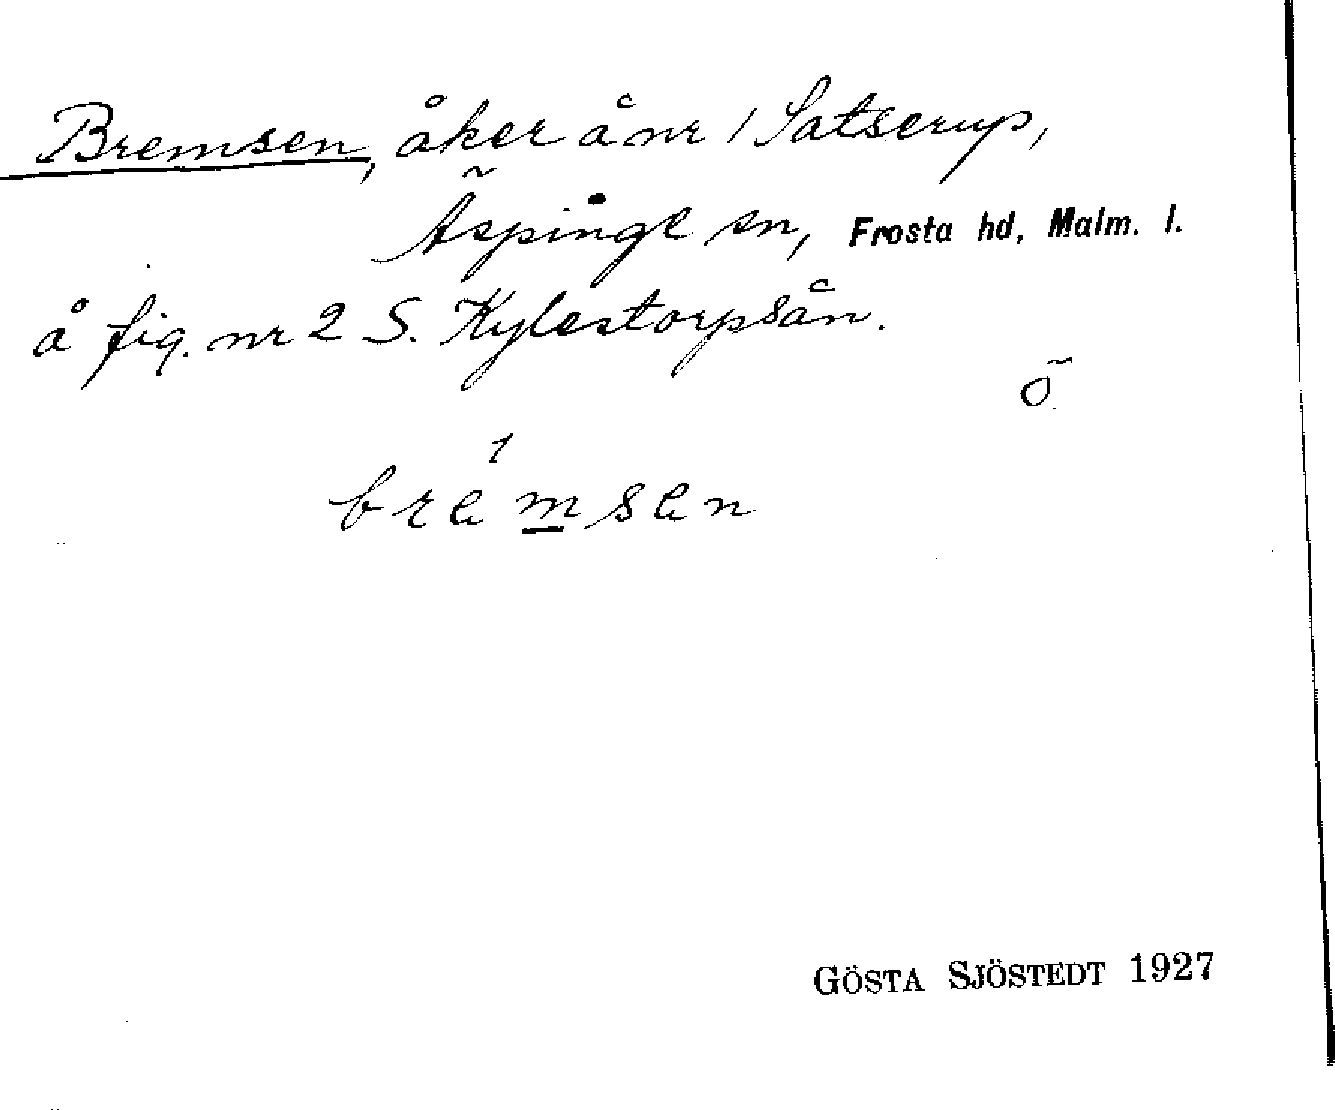 Bremsen, åker å nr 1 Satserup,
Äspinge sn, Frosta hd, Malm. l.
å fig. nr 2 S. Kylestorpsån.
Ö
bremsen
GÖSTA SJÖSTEDT 1927